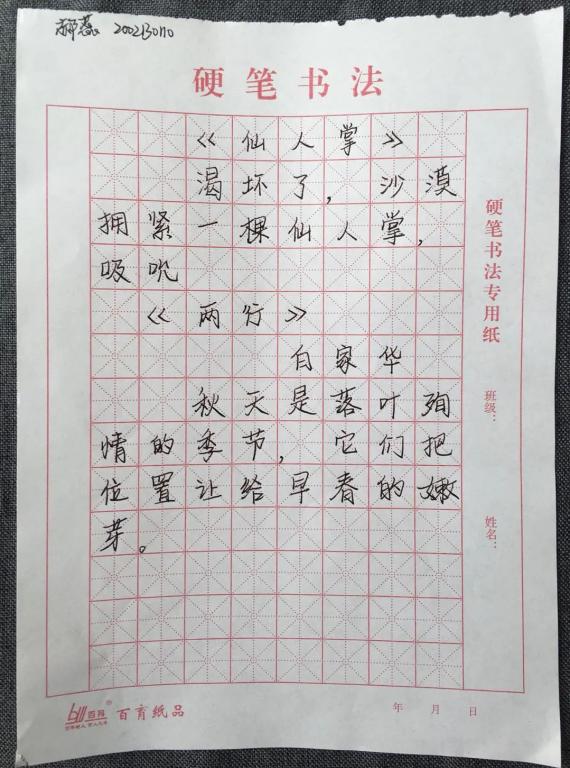 郝蕊 2002130110
硬笔书法
《仙人掌》
渴坏了，沙漠
拥紧一棵仙人掌，
吸吮
《两行》
白家华
秋天是落叶殉
情的季节，它们把
位置让给早春的嫩
芽。
硬笔书法专用纸
班级：
姓名：
百育
百育纸品
年 月 日